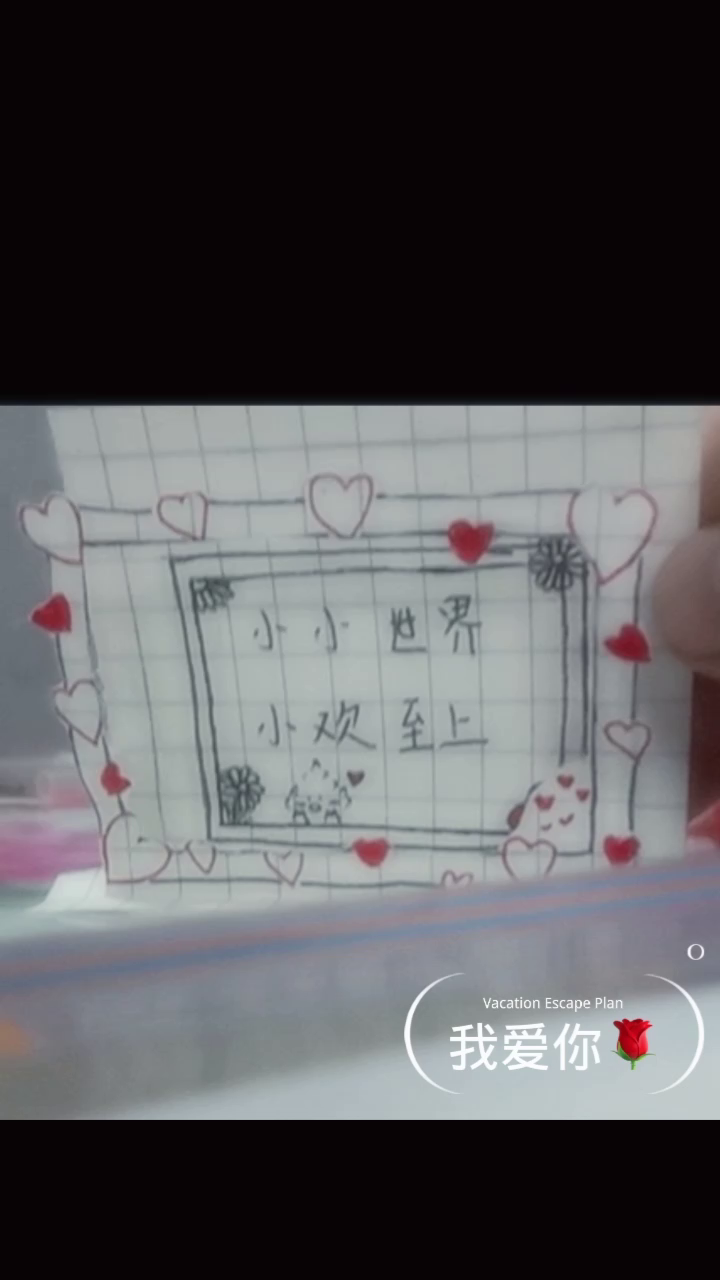 小小世界
小欢至上
O
Vacation Escape Plan
我爱你🌹